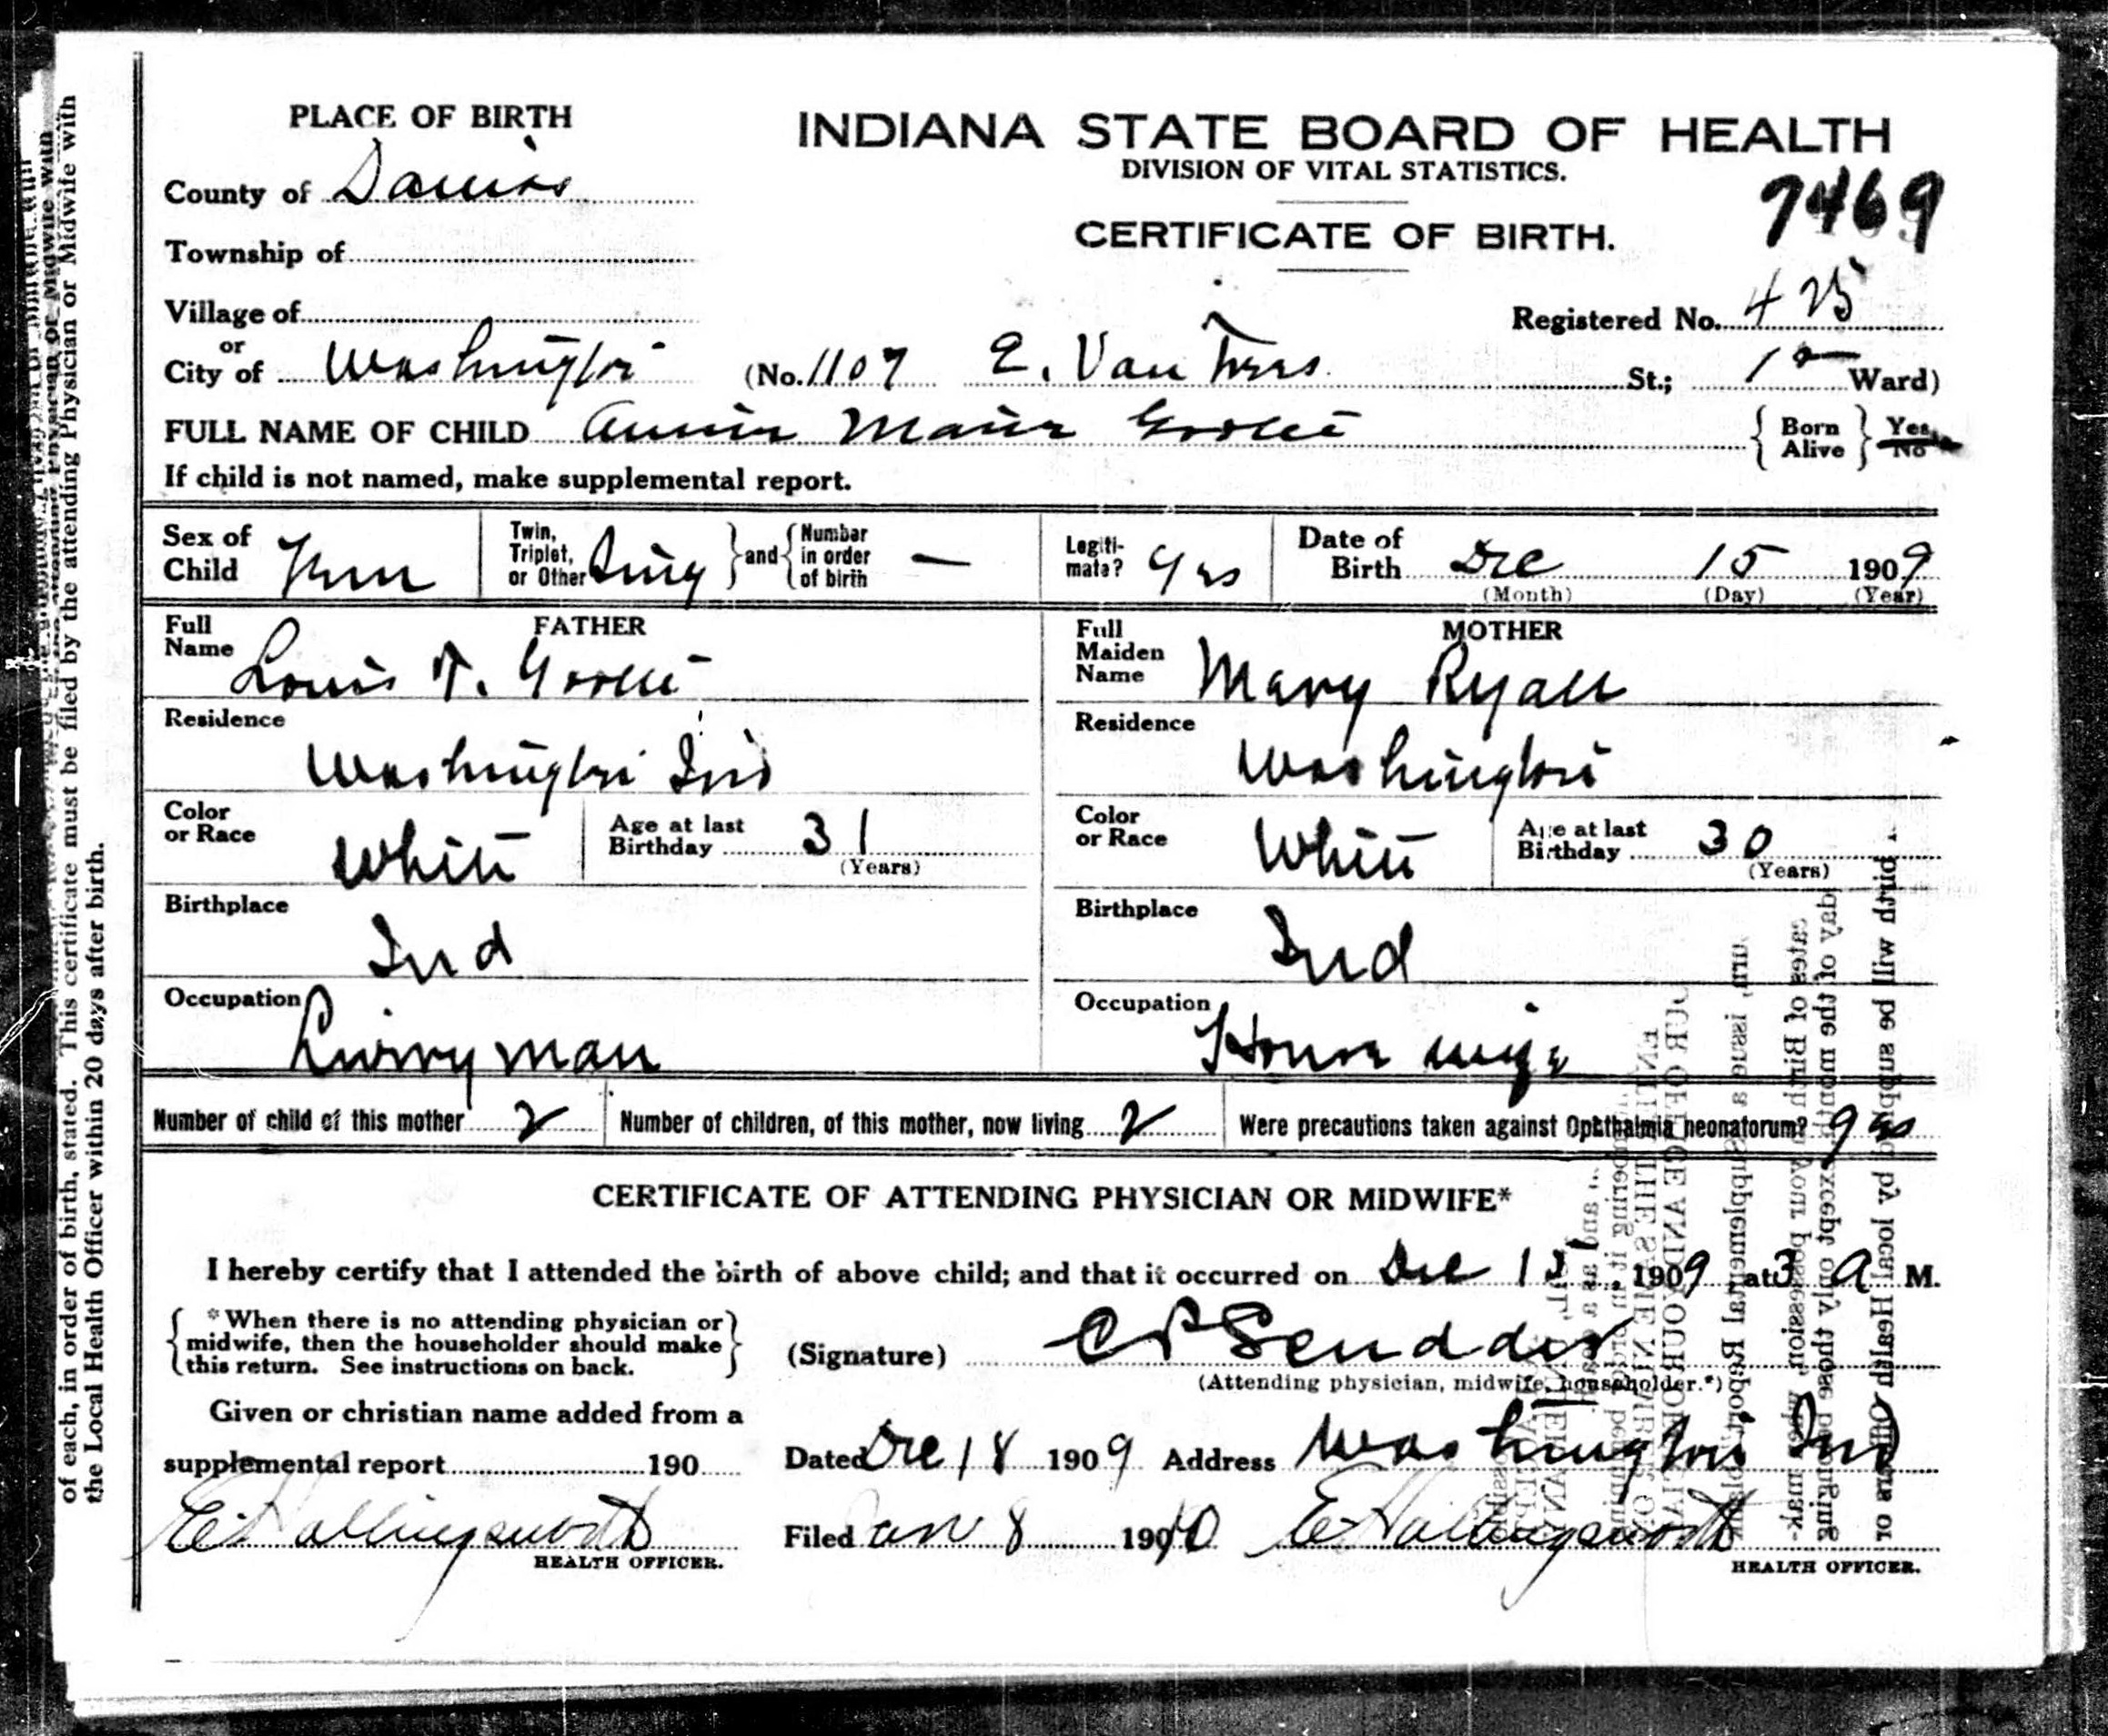 PLACE OF BIRTH
INDIANA STATE BOARD OF HEALTH
DIVISION OF VITAL STATISTICS.
CERTIFICATE OF BIRTH.
7469
County of Daviess
Township of
Village of
or
City of Washington (No. 1107 E. Van Trees St.; 1st Ward)
Registered No. 425
FULL NAME OF CHILD Annie Marie { Born Alive } Yes No
If child is not named, make supplemental report.
Sex of Child Fem
Twin, Triplet, or Other Sing } and { Number in order of birth —
Legiti-mate? Yes
Date of Birth Dec 15 1909
(Month) (Day) (Year)
FATHER
Full Name Louis T.
Residence Washington Ind
Color or Race White
Age at last Birthday 31 (Years)
Birthplace Ind
Occupation Livery man
MOTHER
Full Maiden Name Mary Ryall
Residence Washington
Color or Race White
Age at last Birthday 30 (Years)
Birthplace Ind
Occupation House wife
Number of child of this mother 2
Number of children, of this mother, now living 2
Were precautions taken against Ophthalmia neonatorum? Yes
CERTIFICATE OF ATTENDING PHYSICIAN OR MIDWIFE*
I hereby certify that I attended the birth of above child; and that it occurred on Dec 15, 1909 at 3 A M.
{ *When there is no attending physician or midwife, then the householder should make this return. See instructions on back. }
(Signature) C P Scudder
(Attending physician, midwife, householder.*)
Given or christian name added from a
supplemental report 190
Dated Dec 18 1909 Address Washington Ind
E Hollingsworth
HEALTH OFFICER.
Filed Jan 8 1910 E Hollingsworth
HEALTH OFFICER.
of each, in order of birth, stated. This certificate must be filed by the attending Physician or Midwife with
the Local Health Officer within 20 days after birth.